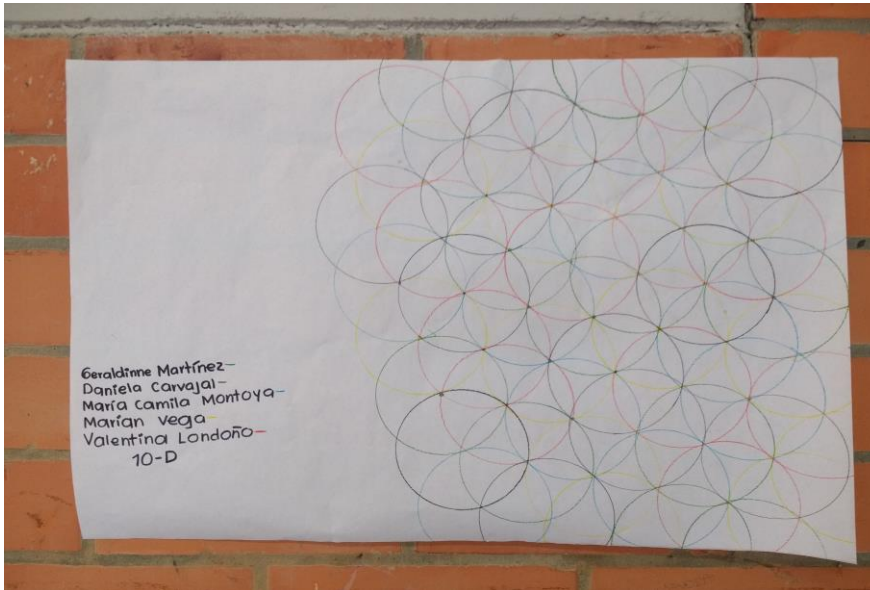 Geraldinne Martínez-
Daniela Carvajal-
María Camila Montoya-
Marian Vega-
Valentina Londoño-
10-D